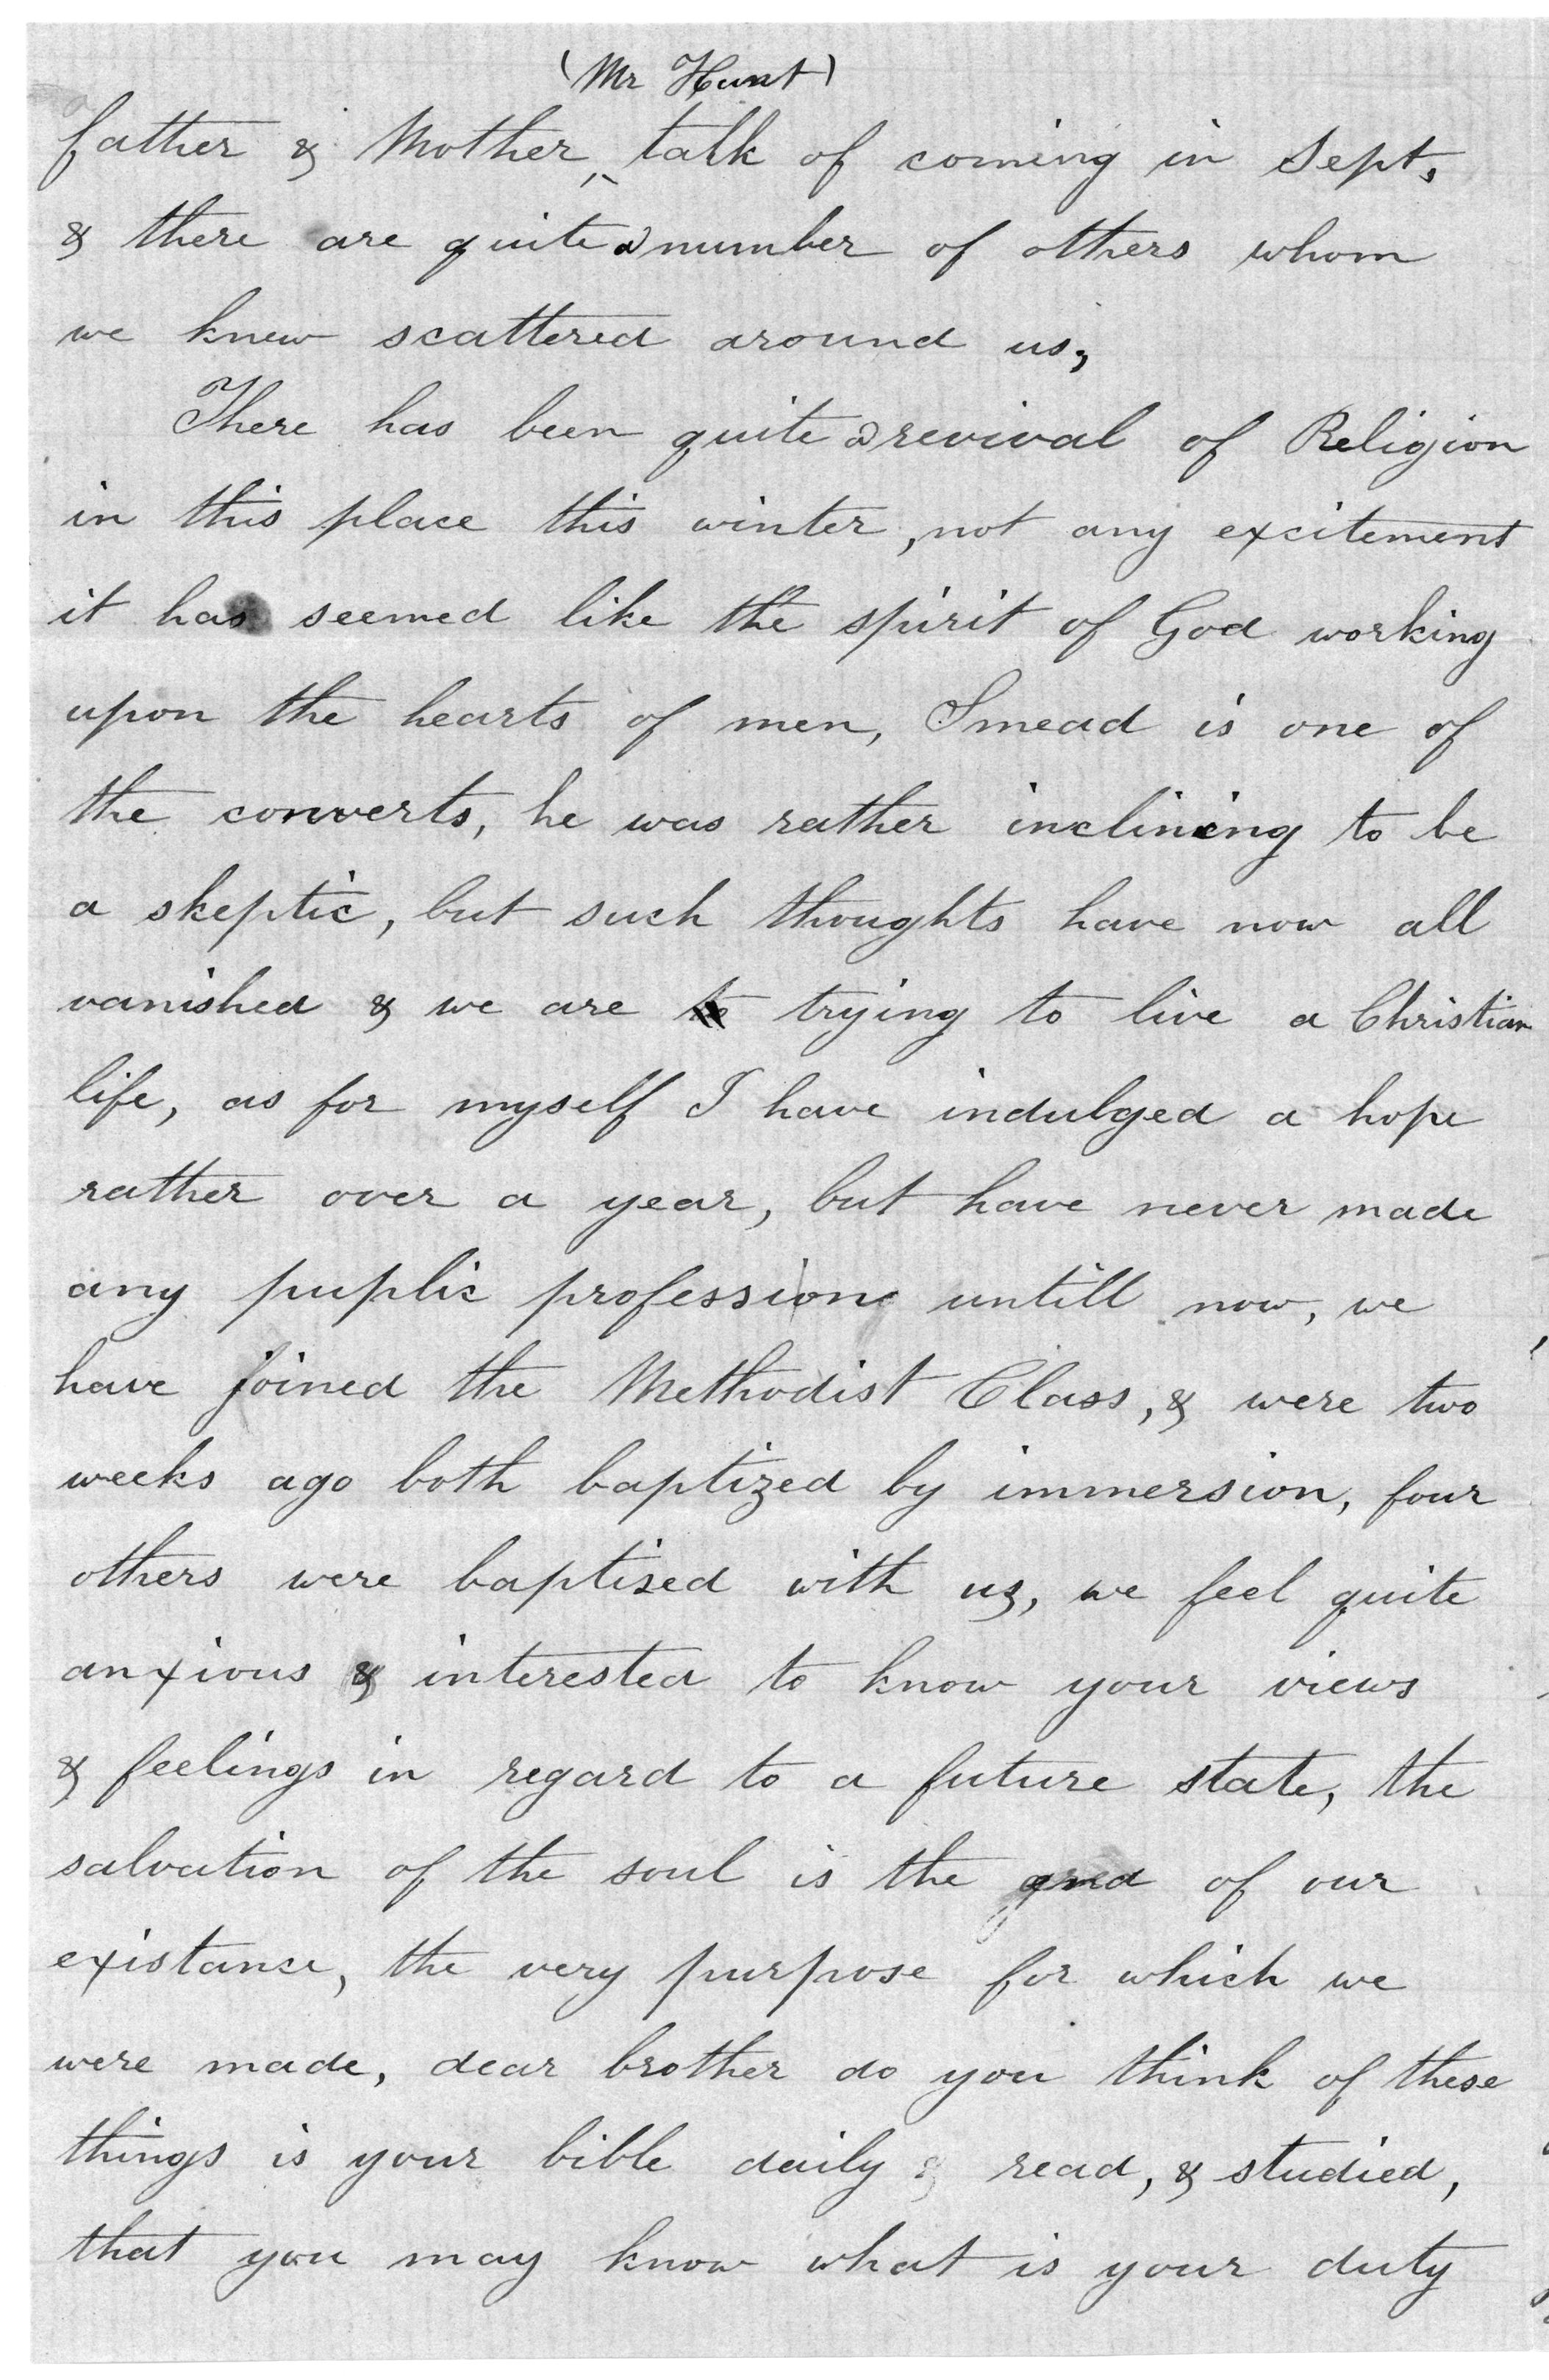 (Mr Hunt)
father & Mother ^ talk of coming in Sept,
& there are quite a number of others whom
we knew scattered around us,
There has been quite a revival of Religion
in this place this winter, not any excitement
it has seemed like the spirit of God working
upon the hearts of men, Smead is one of
the converts, he was rather inclining to be
a skeptic, but such thoughts have now all
vanished & we are trying to live a Christian
life, as for myself I have indulged a hope
rather over a year, but have never made
any puplic profession untill now, we
have joined the Methodist Class, & were two
weeks ago both baptized by immersion, four
others were baptised with us, we feel quite
anxious & interested to know your views
& feelings in regard to a future state, the
salvation of the soul is the of our
existance, the very purpose for which we
were made, dear brother do you think of these
things is your bible daily read, & studied,
that you may know what is your duty